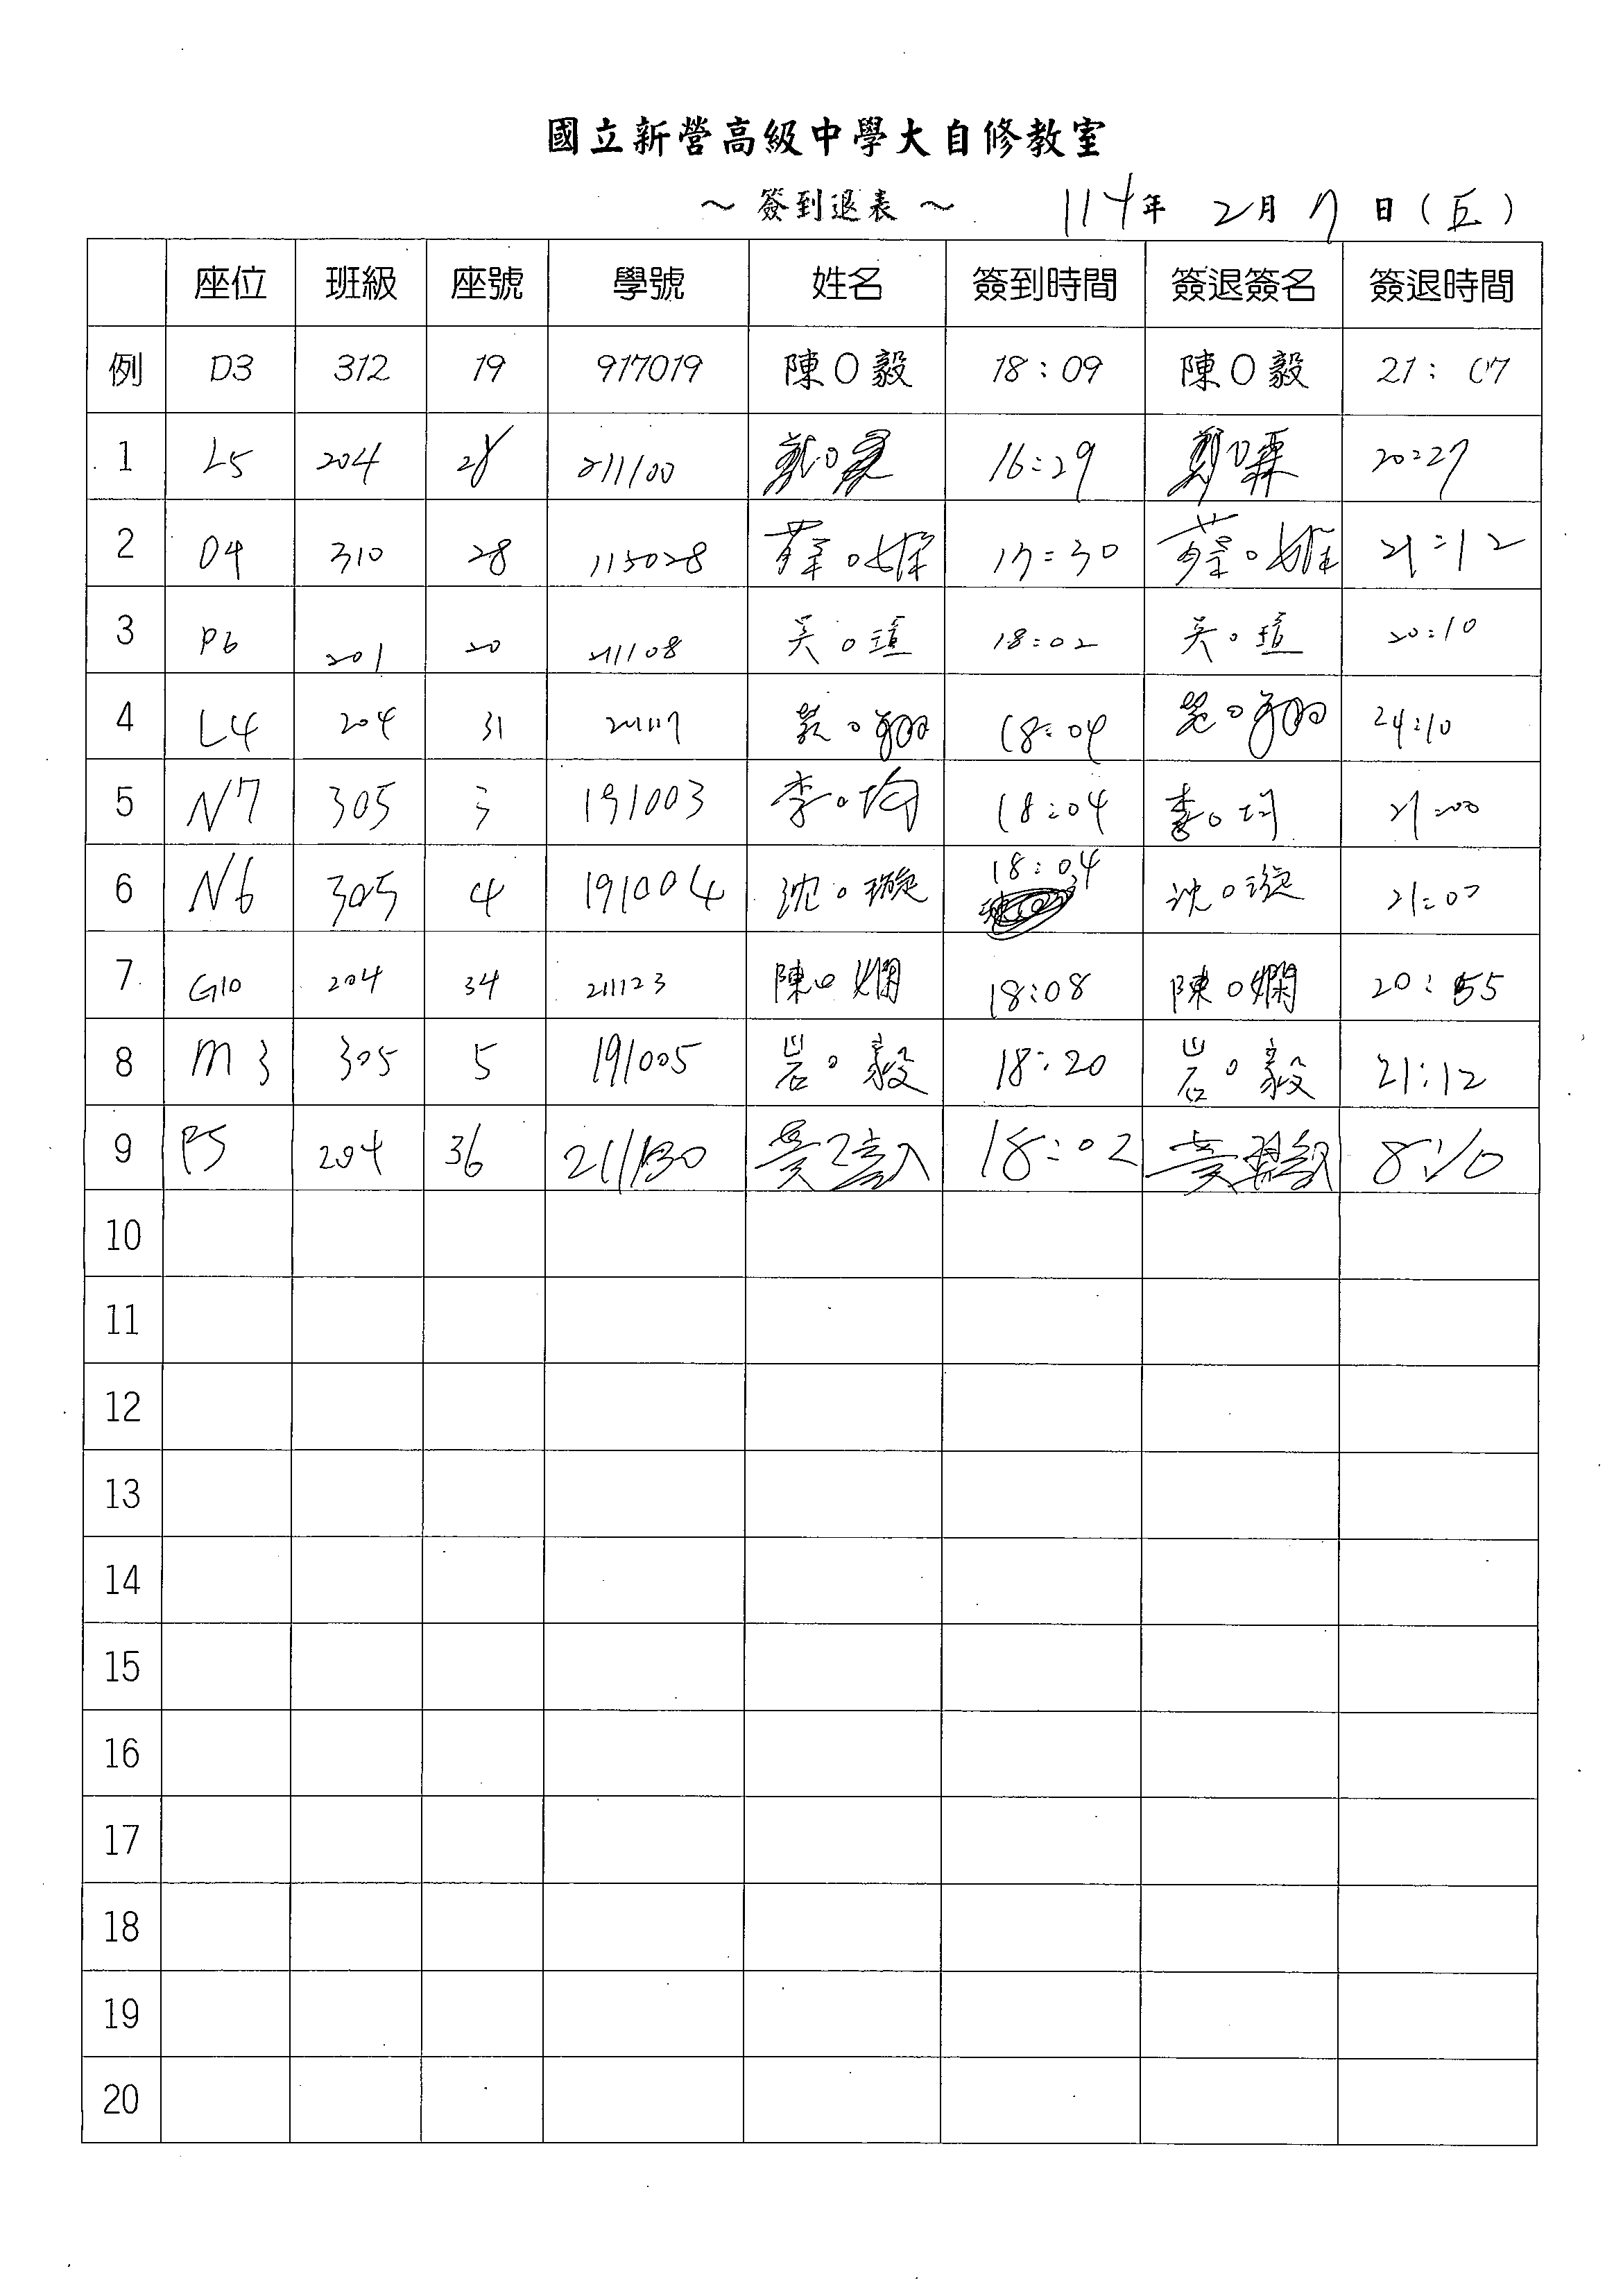 國立新營高級中學大自修教室
～簽到退表～ 114年 2月 7日(五)
座位 班級 座號 學號 姓名 簽到時間 簽退簽名 簽退時間
例 D3 312 19 917019 陳O毅 18:09 陳O毅 21:07
1 L5 204 28 211100 鄭O 16:29 鄭O霖 20:27
2 D4 310 28 115028 蔡O 17:30 蔡O 21:12
3 P6 201 20 211108 吳O瑄 18:02 吳O瑄 20:10
4 L4 204 31 211117 O翔 18:04 O翔 24:10
5 N7 305 3 191003 李O均 18:04 李O均 21:00
6 N6 305 4 191004 沈O璇 18:04 沈O璇 21:00
7 G10 204 34 211123 陳O嫻 18:08 陳O嫻 20:55
8 M3 305 5 191005 岩O毅 18:20 岩O毅 21:12
9 P5 204 36 211130 黃 18:02 黃 8:10
10
11
12
13
14
15
16
17
18
19
20